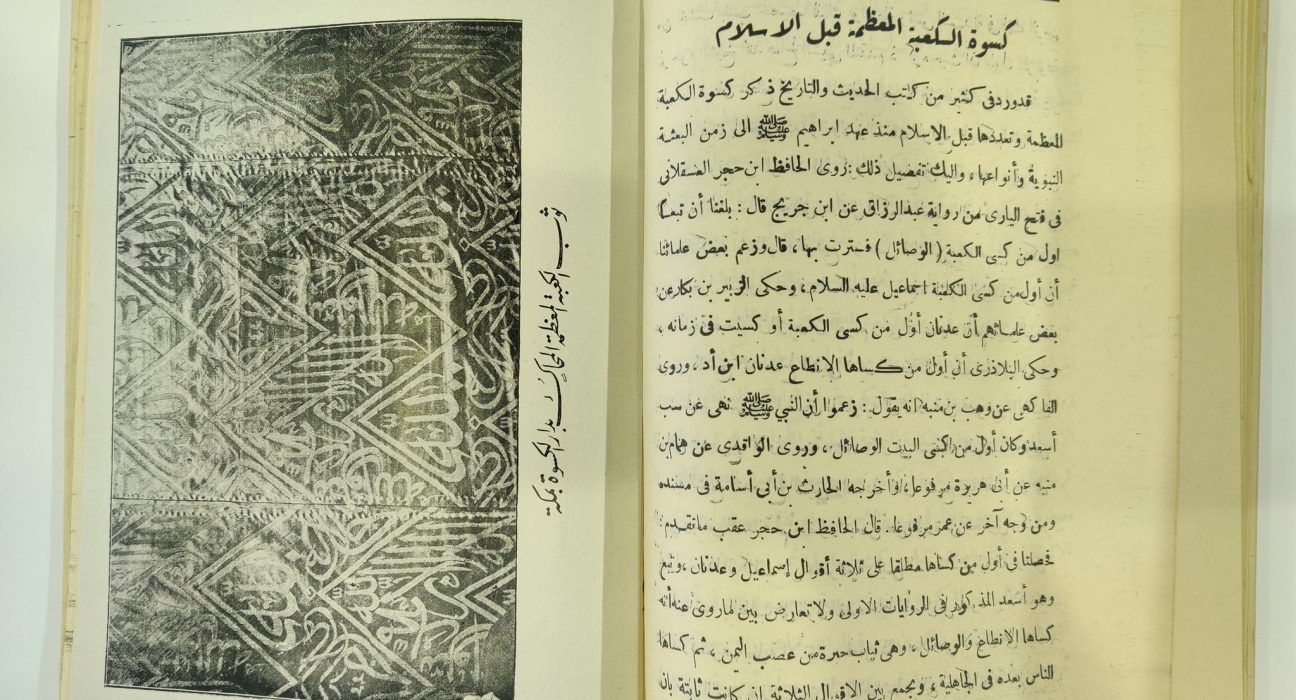 كسوة الكعبة المعظمة قبل الاسلام
قد ورد فى كثير من كتب الحديث والتاريخ ذكر كسوة الكعبة
المعظمة وتعددها قبل الاسلام منذ عهد ابراهيم ﷺ الى زمن البعثة
النبوية وأنواعها، واليك تفصيل ذلك : روى الحافظ ابن حجر العسقلانى
فى فتح البارى من رواية عبدالرزاق عن ابن جريج قال : بلغنا أن تبعا
اول من كسى الكعبة (الوصائل) فسترت بها، قال وزعم بعض علمائنا
أن أول من كسى الكعبة اسماعيل عليه السلام، وحكى الزبير بن بكار عن
بعض علمائهم أن عدنان أول من كسى الكعبة أو كسيت فى زمانه،
وحكى البلاذرى أن أول من كساها الانطاع عدنان ابن أد، وروى
الفاكهى عن وهب بن منبه انه يقول : زعموا أن النبى ﷺ نهى عن سب
أسعد وكان أول من كسى البيت الوصائل، وروى الواقدى عن همام بن
منبه عن أبى هريرة مرفوعا، وأخرجه الحارث بن أبى أسامة فى مسنده
ومن وجه آخر عن عمر مرفوعا. قال الحافظ ابن حجر عقب ما تقدم :
فحصلنا فى أول من كساها مطلقا على ثلاثة أقوال إسماعيل وعدنان، وتبع
وهو أسعد المذكور فى الروايات الاولى ولا تعارض بين ما روى عنه أنه
كساها الانطاع والوصائل، وهى ثياب حبرة من عصب اليمن، ثم كساها
الناس بعده فى الجاهلية، ويجمع بين الاقوال الثلاثة ان كانت ثابتة بان
ثوب الكعبة المعظمة المحاك بدار الكسوة بمكة